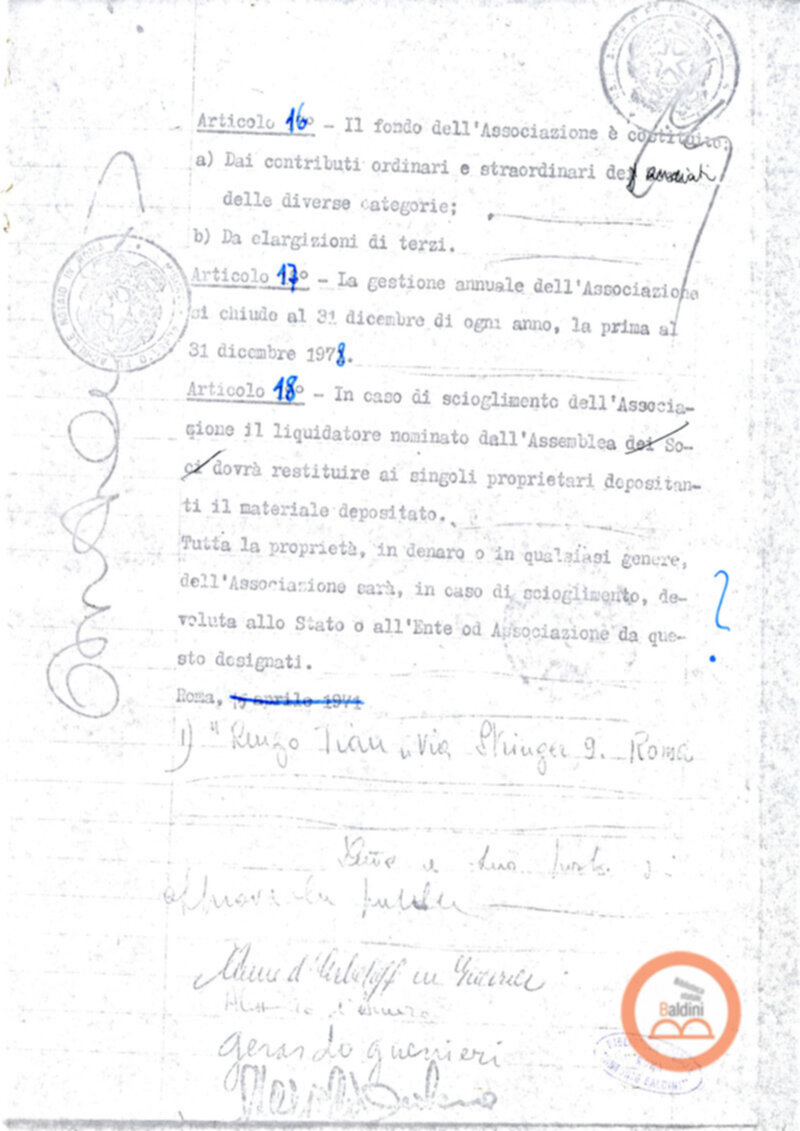 Articolo 16° - Il fondo dell'Associazione è costituito:
a) Dai contributi ordinari e straordinari degli associati
delle diverse categorie;
b) Da elargizioni di terzi.
Articolo 17° - La gestione annuale dell'Associazione
si chiude al 31 dicembre di ogni anno, la prima al
31 dicembre 1978.
Articolo 18° - In caso di scioglimento dell'Associa-
zione il liquidatore nominato dall'Assemblea dei So-
ci dovrà restituire ai singoli proprietari depositan-
ti il materiale depositato.
Tutta la proprietà, in denaro o in qualsiasi genere,
dell'Associazione sarà, in caso di scioglimento, de-
voluta allo Stato o all'Ente od Associazione da que-
sto designati.
?
Roma, aprile 1971
1) "Renzo Tian" Via Stringer 9. Roma
in Guerrieri
gerardo guerrieri
Biblioteca
statale
Baldini